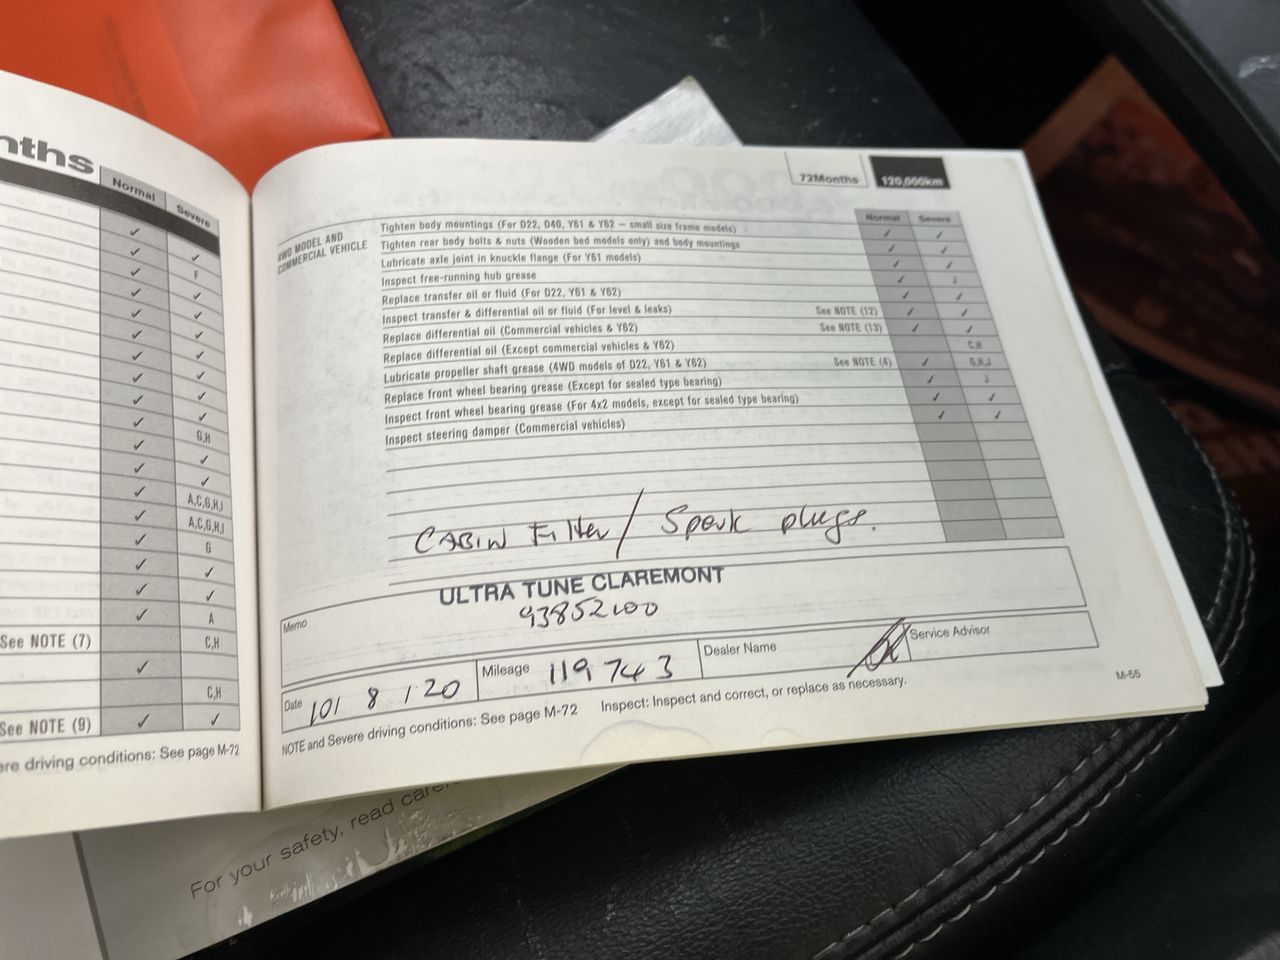 nths
Normal
Severe
✓
✓ ✓
✓ F
✓ ✓
✓ ✓
✓ ✓
✓ ✓
✓ ✓
✓ ✓
✓ G,H
✓ ✓
✓ ✓
✓ A,C,G,H,I
✓ A,C,G,H,I
✓ G
✓ ✓
✓ ✓
✓ A
See NOTE (7) C,H
✓
C,H
See NOTE (9) ✓ ✓
ere driving conditions: See page M-72
72Months 120,000km
Normal Severe
4WD MODEL AND
COMMERCIAL VEHICLE
Tighten body mountings (For D22, D40, Y61 & Y62 – small size frame models) ✓ ✓
Tighten rear body bolts & nuts (Wooden bed models only) and body mountings ✓ ✓
Lubricate axle joint in knuckle flange (For Y61 models) ✓ ✓
Inspect free-running hub grease ✓ J
Replace transfer oil or fluid (For D22, Y61 & Y62) ✓ ✓
Inspect transfer & differential oil or fluid (For level & leaks) See NOTE (12) ✓ ✓
Replace differential oil (Commercial vehicles & Y62) See NOTE (13) ✓ ✓
Replace differential oil (Except commercial vehicles & Y62) C,H
Lubricate propeller shaft grease (4WD models of D22, Y61 & Y62) See NOTE (4) ✓ G,H,J
Replace front wheel bearing grease (Except for sealed type bearing) ✓ J
Inspect front wheel bearing grease (For 4x2 models, except for sealed type bearing) ✓ ✓
Inspect steering damper (Commercial vehicles) ✓ ✓
CABIN Filter / Spark plugs.
Memo
ULTRA TUNE CLAREMONT
93852100
Date 10/ 8 / 20 Mileage 119 743 Dealer Name Service Advisor
NOTE and Severe driving conditions: See page M-72 Inspect: Inspect and correct, or replace as necessary.
M-55
For your safety, read care